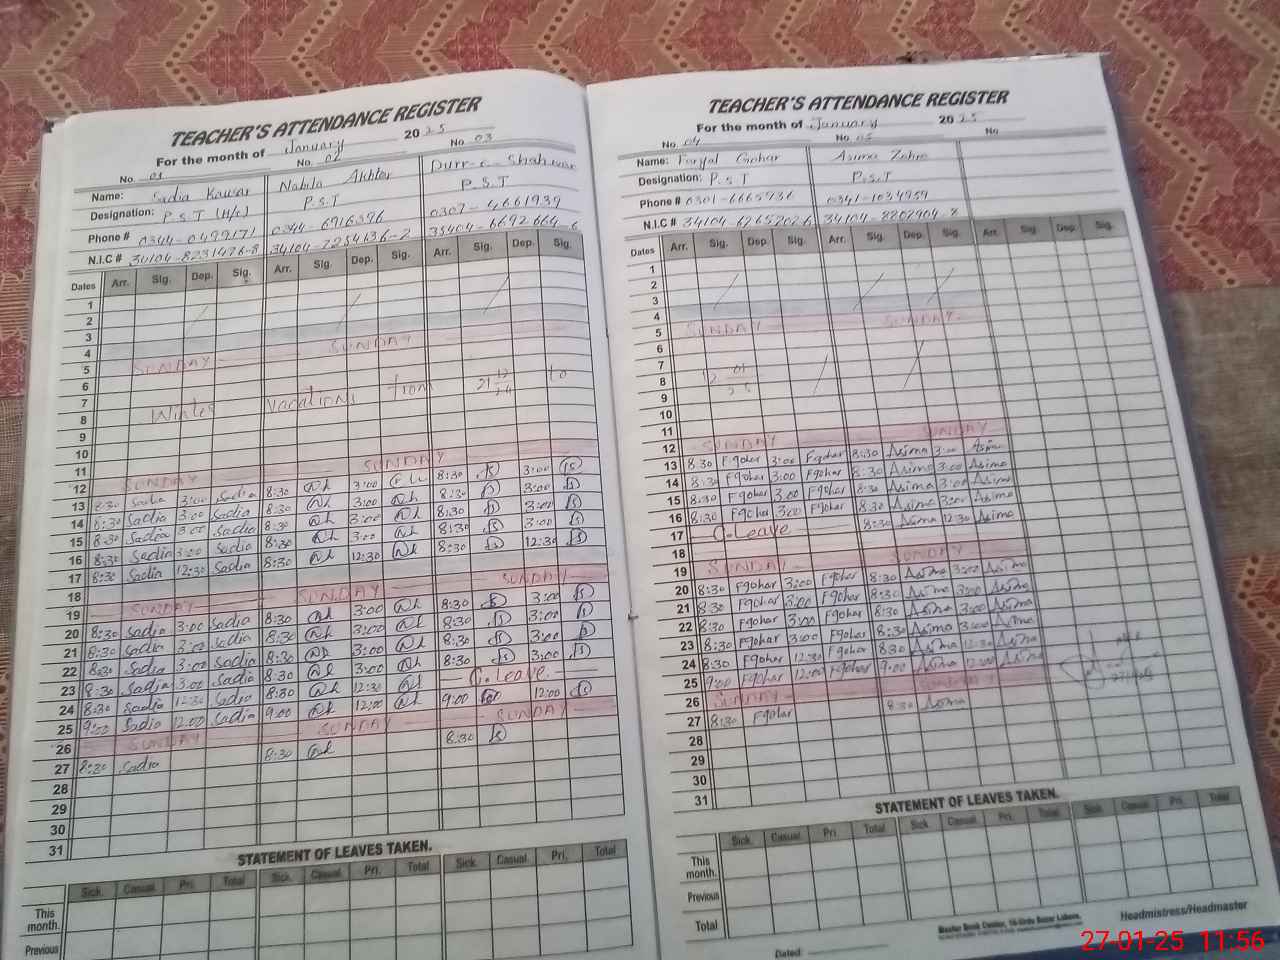 TEACHER'S ATTENDANCE REGISTER
For the month of January 2025
No. 01 No. 02 No. 03
Name: Sadia Kawar Nabila Akhter Durr-e-Shahwar
Designation: P.S.T (H/t) P.S.T P.S.T
Phone # 0344-0499171 0344-6916396 0307-4661939
N.I.C # 34104-8231476-8 34104-7254636-2 35404-6692664-6
Dates Arr. Sig. Dep. Sig. Arr. Sig. Dep. Sig. Arr. Sig. Dep. Sig.
1
2
3
4
5 SUNDAY SUNDAY
6
7 Winter vacations from 21 12/24 to
8
9
10
11
12 SUNDAY SUNDAY
13 8:30 Sadia 3:00 Sadia 8:30 Nh 3:00 8:30 3:00
14 8:30 Sadia 3:00 Sadia 8:30 Nh 3:00 Nh 8:30 3:00
15 8:30 Sadia 3:00 Sadia 8:30 Nh 3:00 Nh 8:30 3:00
16 8:30 Sadia 3:00 Sadia 8:30 Nh 3:00 Nh 8:30 3:00
17 8:30 Sadia 12:30 Sadia 8:30 Nh 12:30 Nh 8:30 12:30
18
19 SUNDAY SUNDAY SUNDAY
20 8:30 Sadia 3:00 Sadia 8:30 Nh 3:00 Nh 8:30 3:00
21 8:30 Sadia 3:00 Sadia 8:30 Nh 3:00 Nh 8:30 3:00
22 8:30 Sadia 3:00 Sadia 8:30 Nh 3:00 Nh 8:30 3:00
23 8:30 Sadia 3:00 Sadia 8:30 Nh 3:00 Nh 8:30 3:00
24 8:30 Sadia 12:30 Sadia 8:30 Nh 12:30 Nh C.Leave
25 9:00 Sadia 12:00 Sadia 9:00 Nh 12:00 Nh 9:00 12:00
26 SUNDAY SUNDAY SUNDAY
27 8:30 Sadia 8:30 Nh 8:30
28
29
30
31
STATEMENT OF LEAVES TAKEN.
Sick. Casual. Pri. Total Sick. Casual. Pri. Total Sick. Casual. Pri. Total
This month.
Previous
TEACHER'S ATTENDANCE REGISTER
For the month of January 2025
No. 04 No. 05 No
Name: Faryal Gohar Asima Zahra
Designation: P.S.T P.S.T
Phone # 0301-6665936 0341-1034959
N.I.C # 34104-6265202-6 34104-8202904-8
Dates Arr. Sig. Dep. Sig. Arr. Sig. Dep. Sig. Arr. Sig. Dep. Sig.
1
2
3
4
5 SUNDAY SUNDAY
6
7
8 12 01/25
9
10
11
12 SUNDAY SUNDAY
13 8:30 Fgohar 3:00 Fgohar 8:30 Asima 3:00 Asima
14 8:30 Fgohar 3:00 Fgohar 8:30 Asima 3:00 Asima
15 8:30 Fgohar 3:00 Fgohar 8:30 Asima 3:00 Asima
16 8:30 Fgohar 3:00 Fgohar 8:30 Asima 3:00 Asima
17 C.Leave 8:30 Asima 12:30 Asima
18
19 SUNDAY SUNDAY
20 8:30 Fgohar 3:00 Fgohar 8:30 Asima 3:00 Asima
21 8:30 Fgohar 3:00 Fgohar 8:30 Asima 3:00 Asima
22 8:30 Fgohar 3:00 Fgohar 8:30 Asima 3:00 Asima
23 8:30 Fgohar 3:00 Fgohar 8:30 Asima 3:00 Asima
24 8:30 Fgohar 12:30 Fgohar 8:30 Asima 12:30 Asima
25 9:00 Fgohar 12:00 Fgohar 9:00 Asima 12:00 Asima
26 SUNDAY SUNDAY
27 8:30 Fgohar 8:30 Asima
28
29
30
31
STATEMENT OF LEAVES TAKEN.
Sick. Casual. Pri. Total Sick. Casual. Pri. Total Sick. Casual. Pri. Total
This month.
Previous
Total
Master Book Center, 16-Urdu Bazar Lahore.
Headmistress/Headmaster
Dated:
27-01-25 11:56